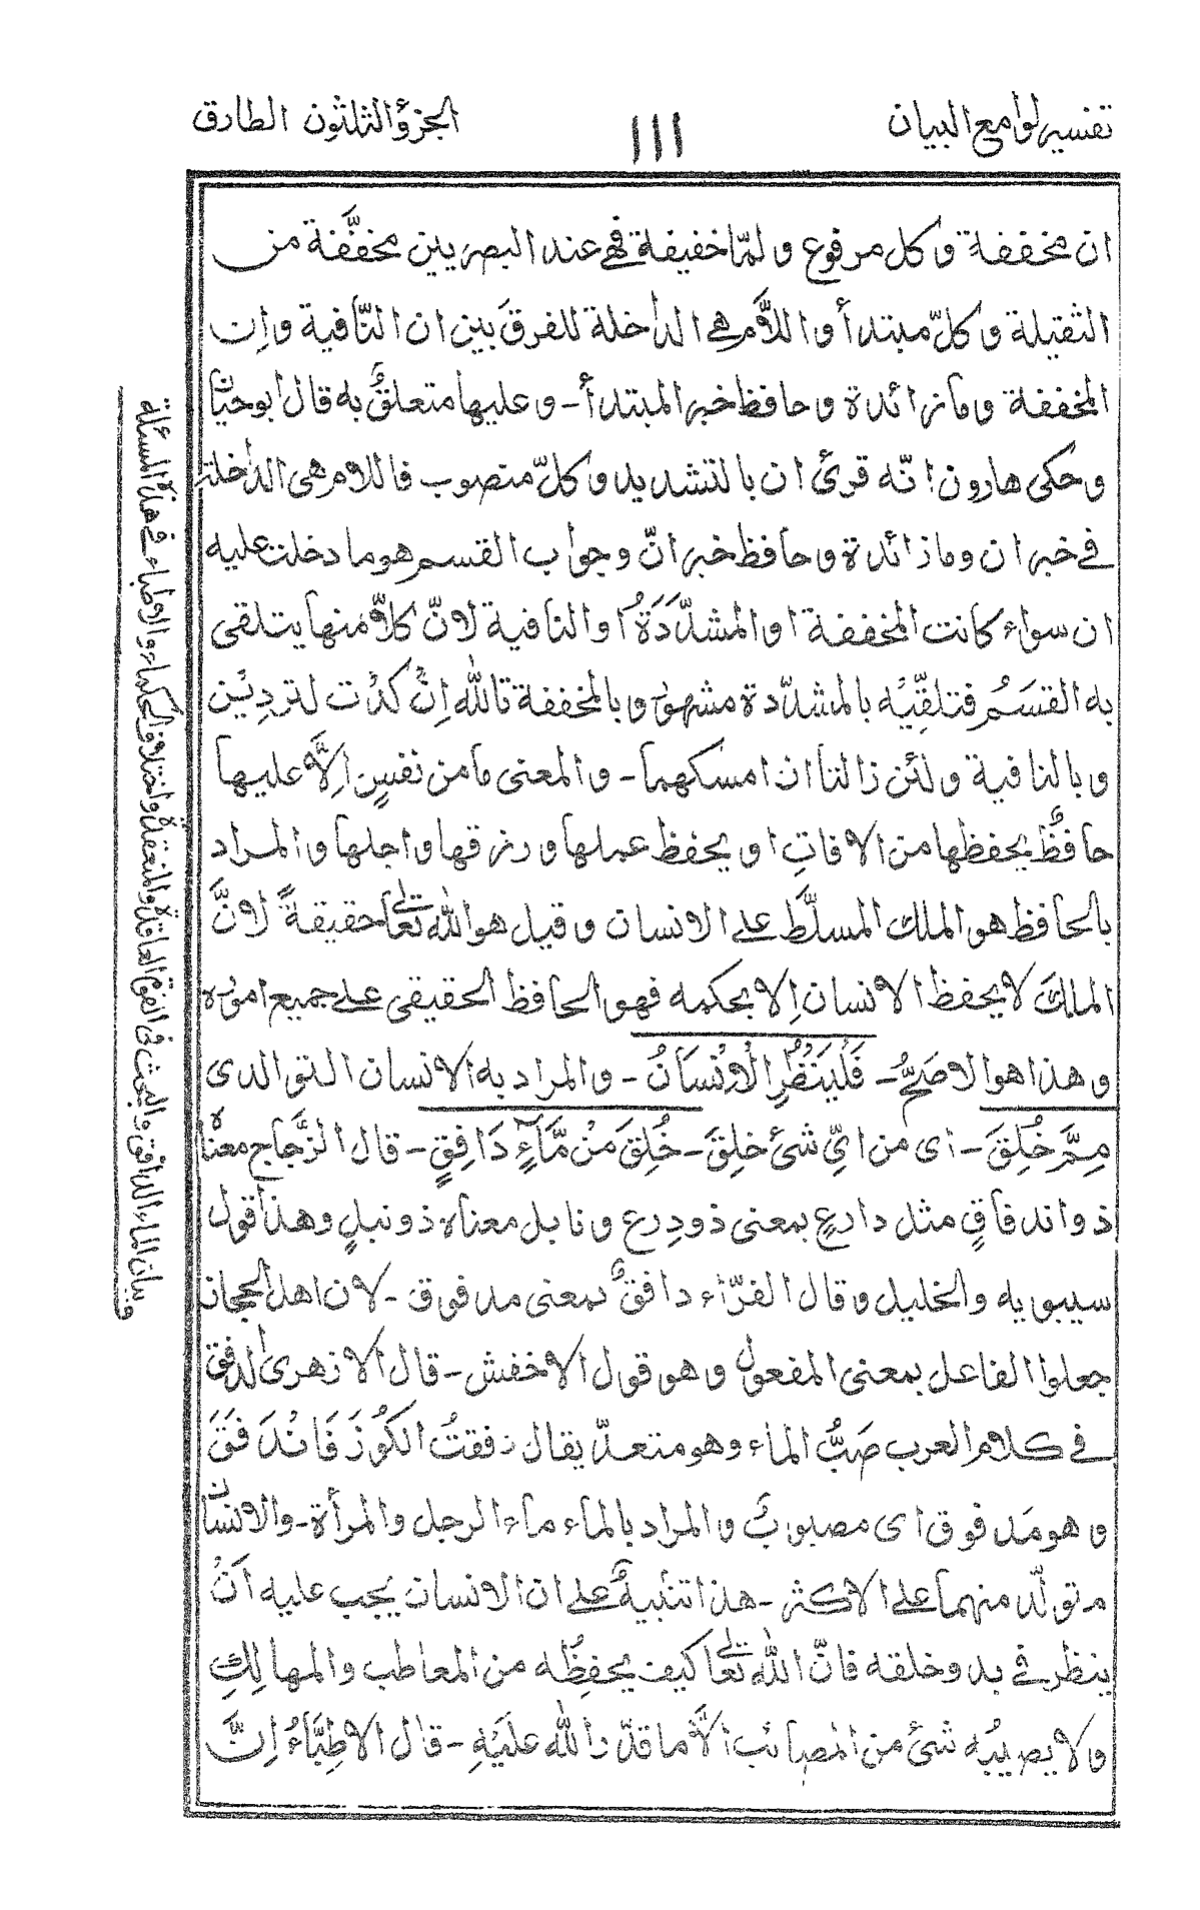 تفسير لوامع البيان
١١١
الجزؤ الثلثون الطارق
ان مخففة وكل مرفوع ولمّا خفيفة فهى عند البصريين مخفَّفة من
الثقيلة وكلّ مبتدأ واللاَّم هى الداخلة للفرقَ بين ان النّافية واِن
المخففة وما زائدة وحافظ خبر المبتدأ - وعليها متعلقٌ به قال ابو حيّان
وحكى هارون انّه قرئ ان بالتشديد وكلّ منصوب فاللام هى الداخلة
فى خبر ان وما زائدة وحافظ خبر انّ وجواب القسم هو ما دخلت عليه
ان سواء كانت المخففة او المشدَّدَةُ او النافية لانّ كلاًّ منها يتلقى
به القسَمُ فتلقِّيْه بالمشدّدة مشهور وبالمخففة تاللّٰه اِنْ كدْت لتردِيْن
وبالنافية ولئن زالتا ان امسكهما - والمعنى ما من نفسٍ اِلاَّ عليها
حافظٌ يحفظها من الافاتِ او يحفظ عملها ورزقها واجلها والمراد
بالحافظ هو الملك المسلَّط على الانسان وقيل هو اللّٰه تعالىٰ حقيقةً لانَّ
الملكَ لا يحفظ الانسان اِلا بحكمه فهو الحافظ الحقيقى على جميع اموره
وهذا هو الاصَحُّ - فَلْيَنْظُرِ الْاِنْسَانُ - والمراد به الانسان التو الدى
مِمَّ خُلِقَ - اى من اىِّ شئ خلِقَ - خُلِقَ مَنْ مَّآءٍ دَافِقٍ - قال الزَّجاج معناه
ذو اندفاقٍ مثل دارعٍ بمعنى ذو دِرع ونابل معناه ذو نبلٍ وهذا قول
سيبويه والخليل وقال الفرّاء دافقٌ بمعنى مدفوق - لان اهل الحجاز
جعلوا الفاعل بمعنى المفعول وهو قول الاخفش - قال الازهرى الدفق
فى كلام العرب صَبُّ الماء وهو متعدّ يقال دفقتُ الكُوْزَ فَانْدَفَقَ
وهو مَدفوق اى مصبوبٌ والمراد بالماء ماء الرجل والمرأة - والانسان
متولّد منهما على الاكثر - هذا تنبيهٌ على ان الانسان يجب عليه اَنْ
ينظر فى بدو خلقه فانّ اللّٰه تعالىٰ كيف يحفِظُه من المعاطب والمهالِكِ
ولا يصيبُه شئ من المصائب الاَّ ما قدّر اللّٰه عَلَيْهِ - قال الاطِبَّاءُ اِنَّ
وبيان الماء الدافق والبحث فى القوة العاقلة والمتعقلة واختلاف الحكماء والاطباء فى هذه المسئلة